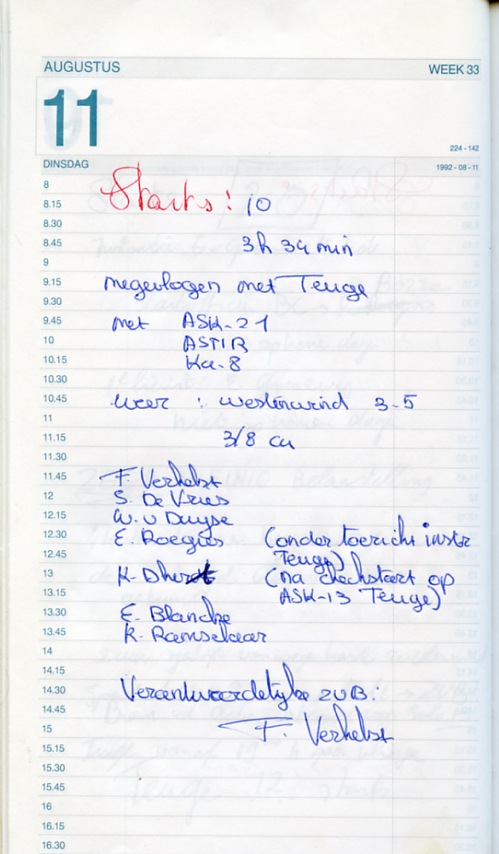 AUGUSTUS WEEK 33
11
224 - 142
DINSDAG 1992 - 08 - 11
8
8.15 Starts: 10
8.30
8.45 3h 34 min
9
9.15 meegevlogen met Teuge
9.30
9.45 met ASK-21
10 ASTIR
10.15 Ka-8
10.30
10.45 weer : westenwind 3-5
11
11.15 3/8 cu
11.30
11.45 F. Verhelst
12 S. De Vries
12.15 W. v Duyse
12.30 E. Roegies (onder toezicht instr
12.45 Teuge)
13 K. Dhert (na checkstart op
13.15 ASK-13 Teuge)
13.30 E. Blancke
13.45 R. Ramselaar
14
14.15
14.30 Verantwoordelijke ZVB:
14.45
15 F. Verhelst
15.15
15.30
15.45
16
16.15
16.30